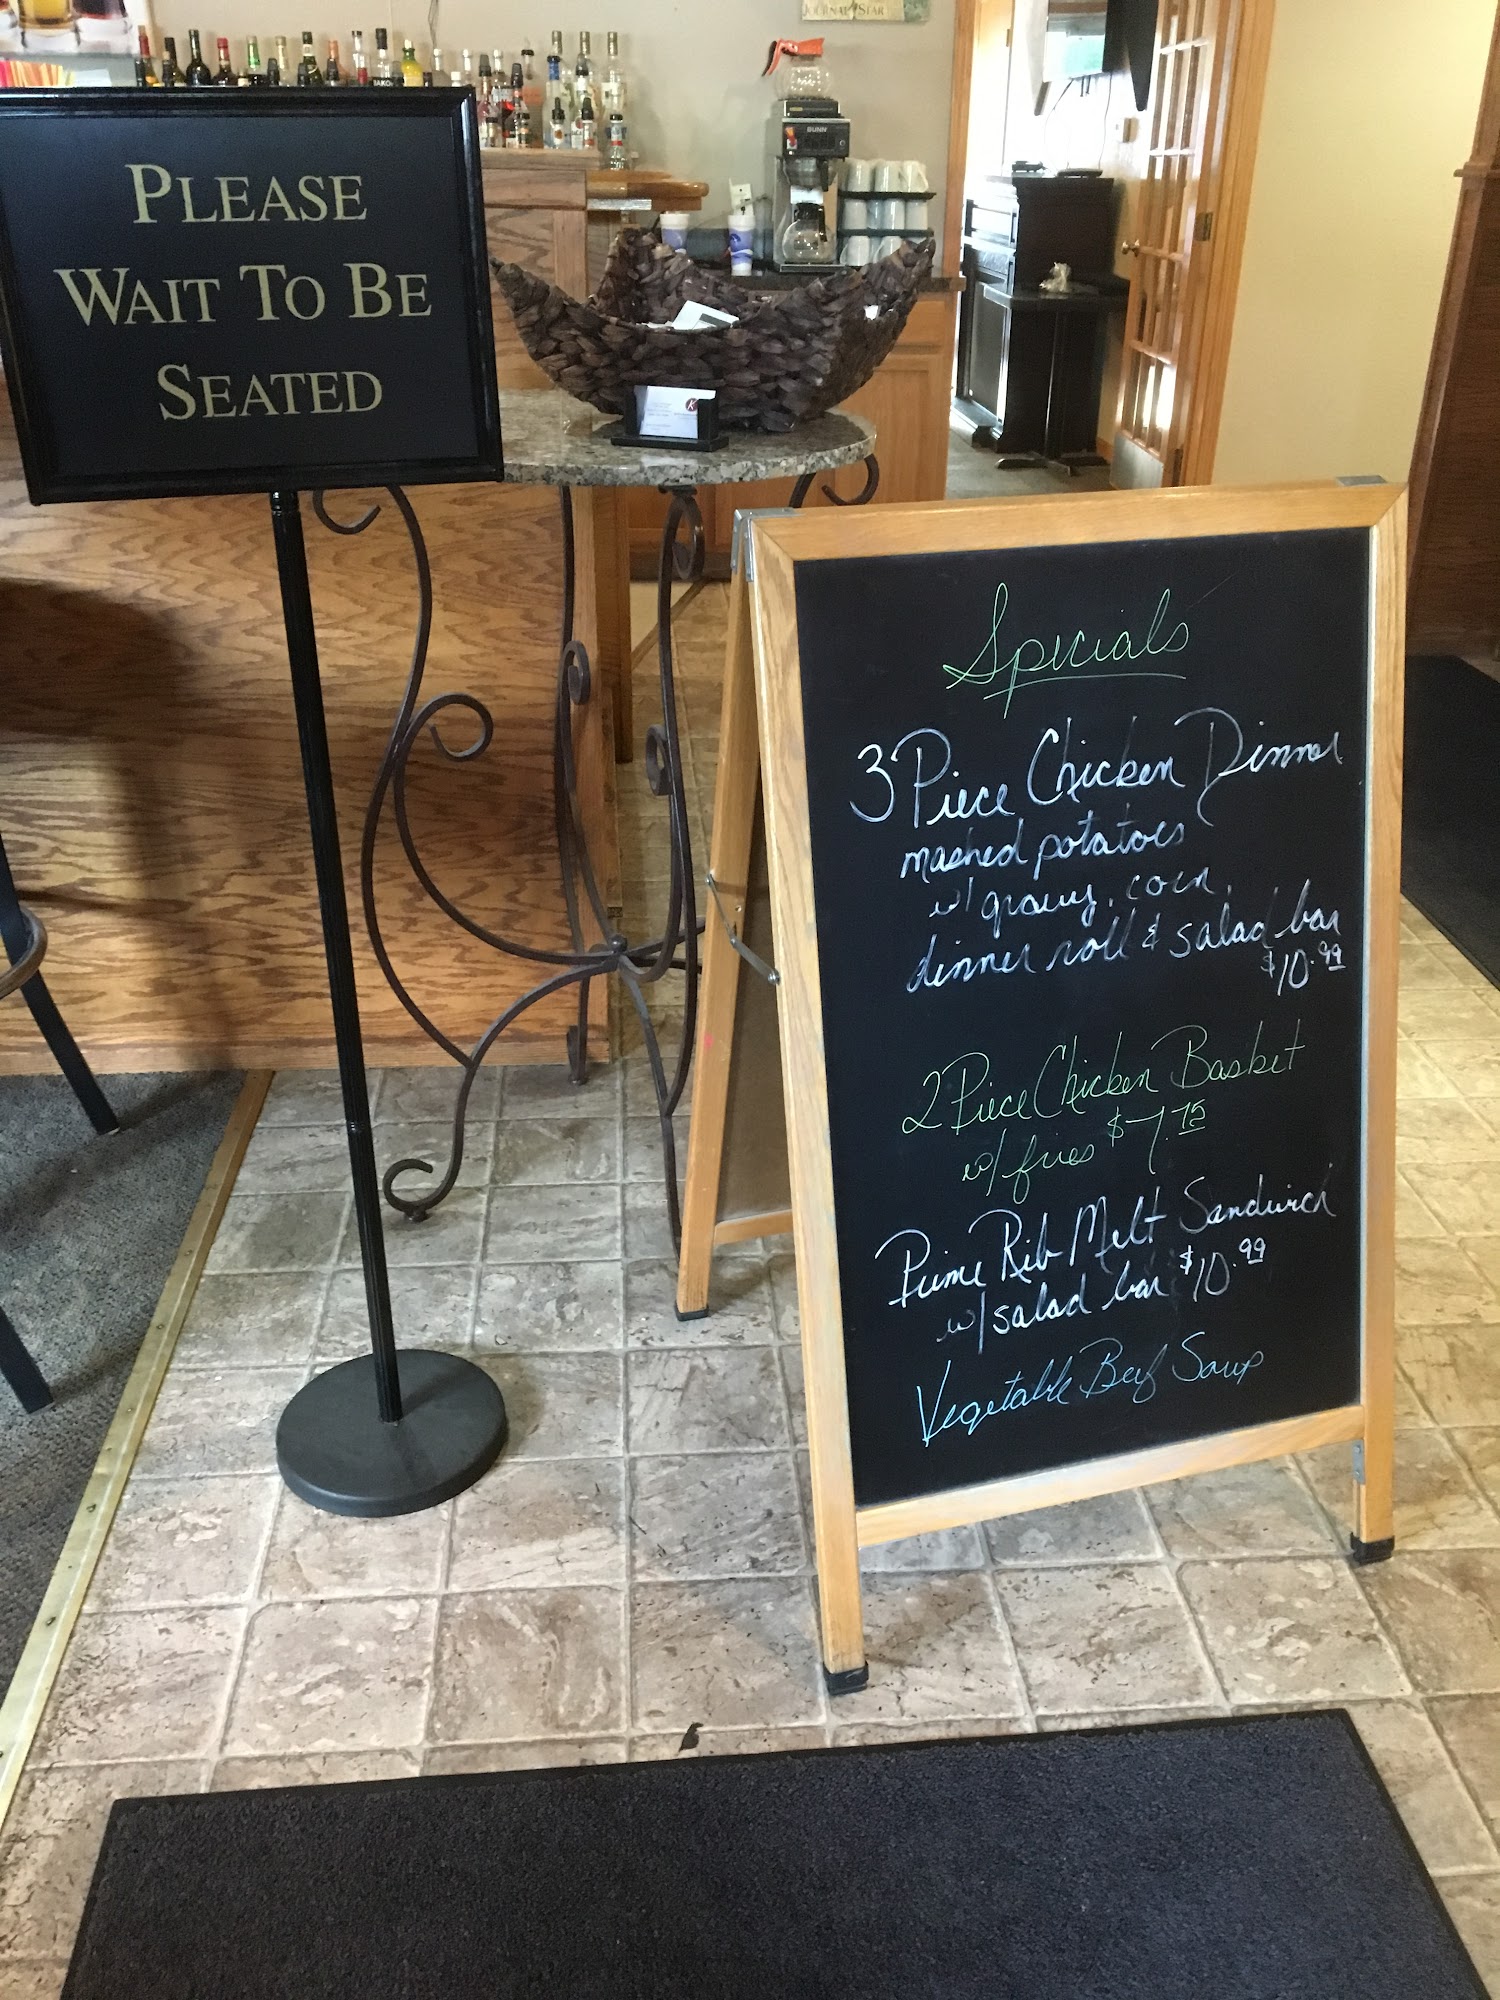 JOURNAL STAR
BUNN
PLEASE
WAIT TO BE
SEATED
K
Specials
3 Piece Chicken Dinner
mashed potatoes
w/ gravy, corn,
dinner roll & salad bar
$10.99
2 Piece Chicken Basket
w/ fries $7.75
Prime Rib Melt Sandwich
w/ salad bar $10.99
Vegetable Beef Soup